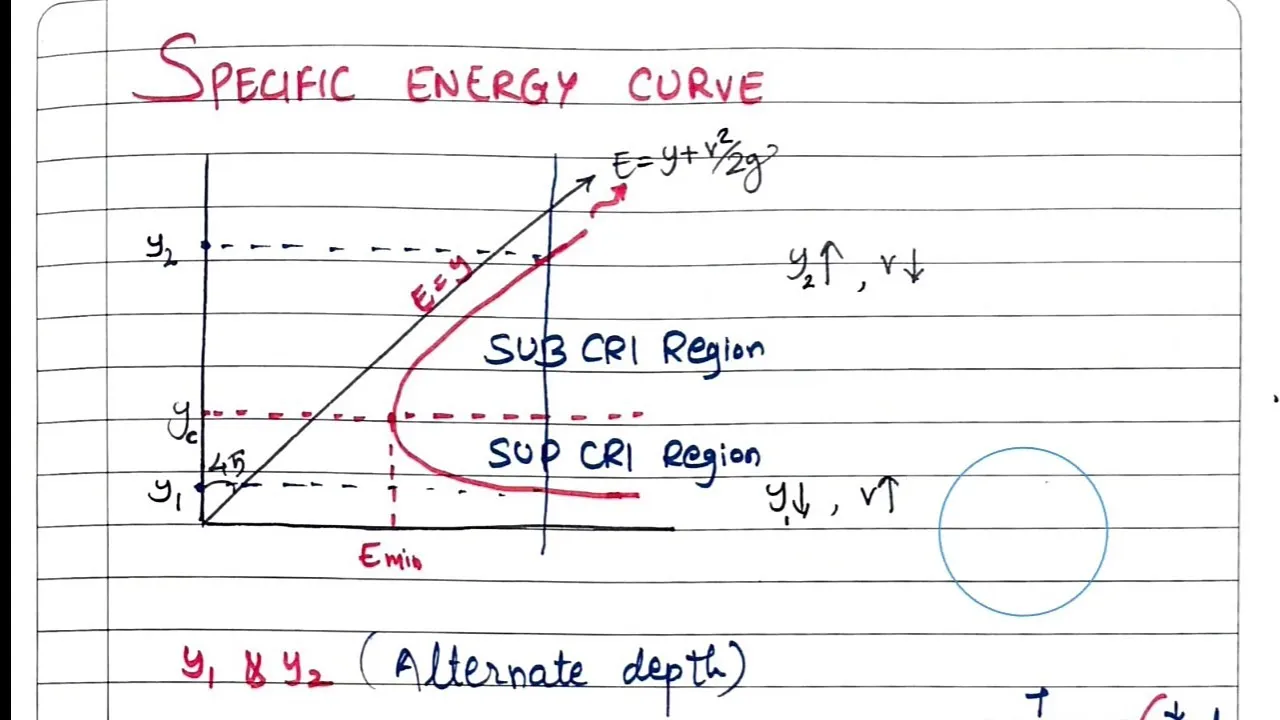 SPECIFIC ENERGY CURVE
E = y + v²/2g
y₂
E = y
y₂↑, v↓
SUB CRI Region
yc
45
SUP CRI Region
y₁
y₁↓, v↑
Emin
y₁ & y₂ (Alternate depth)